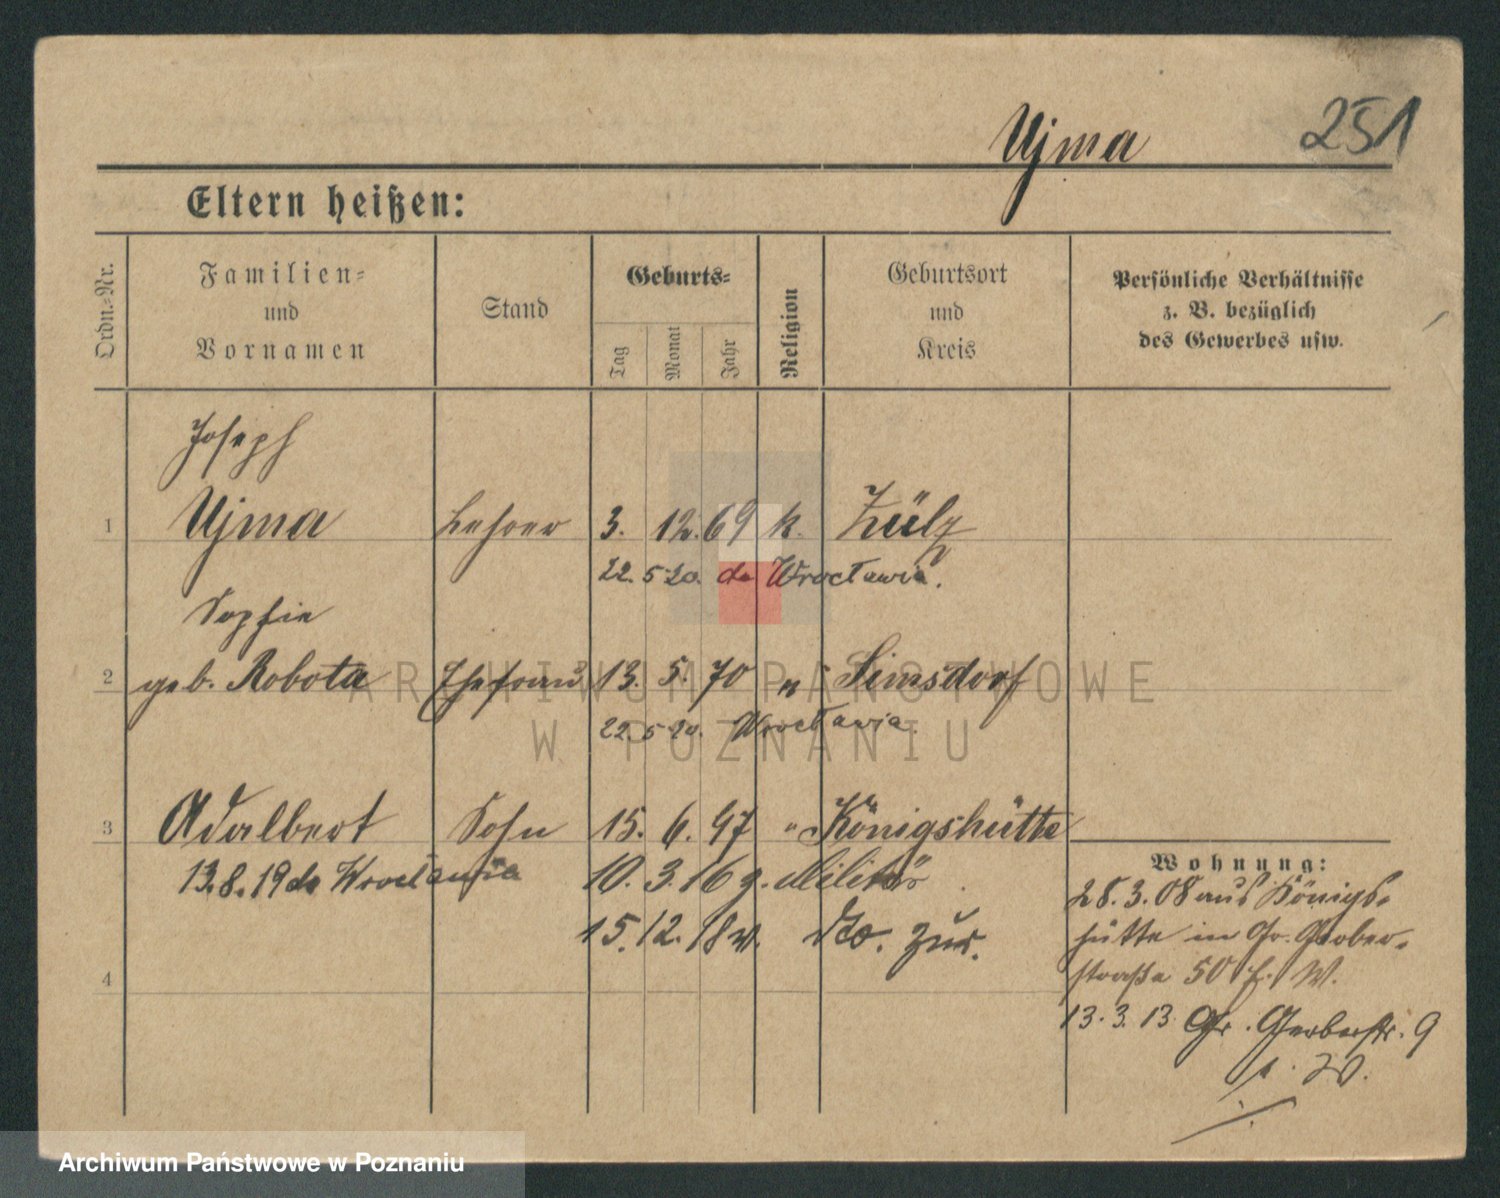 Ujma 251
Eltern heißen:
Ordn.-Nr.
Familien-
und
Vornamen
Stand
Geburts-
Tag
Monat
Jahr
Religion
Geburtsort
und
Kreis
Persönliche Verhältnisse
z. B. bezüglich
des Gewerbes usw.
Joseph
1 Ujma Lehrer 3. 12. 69 k. Zülz
22. 5 20. do Wrocławia.
Sophie
2 geb. Robota Ehefrau 13. 5. 70 " Simsdorf
22. 5 20. Wrocławia.
3 Adalbert Sohn 15. 6. 97 " Königshütte
13. 8. 19 do Wrocławia 10. 3. 16 z. Militär
15. 12. 18 v. zur.
4
Wohnung:
28. 3. 08 aus Königs-
hütte in Gr. Gerber-
straße 50 W.
13. 3. 13 Gr. Gerberstr. 9
ARCHIWUM PAŃSTWOWE
W POZNANIU
Archiwum Państwowe w Poznaniu